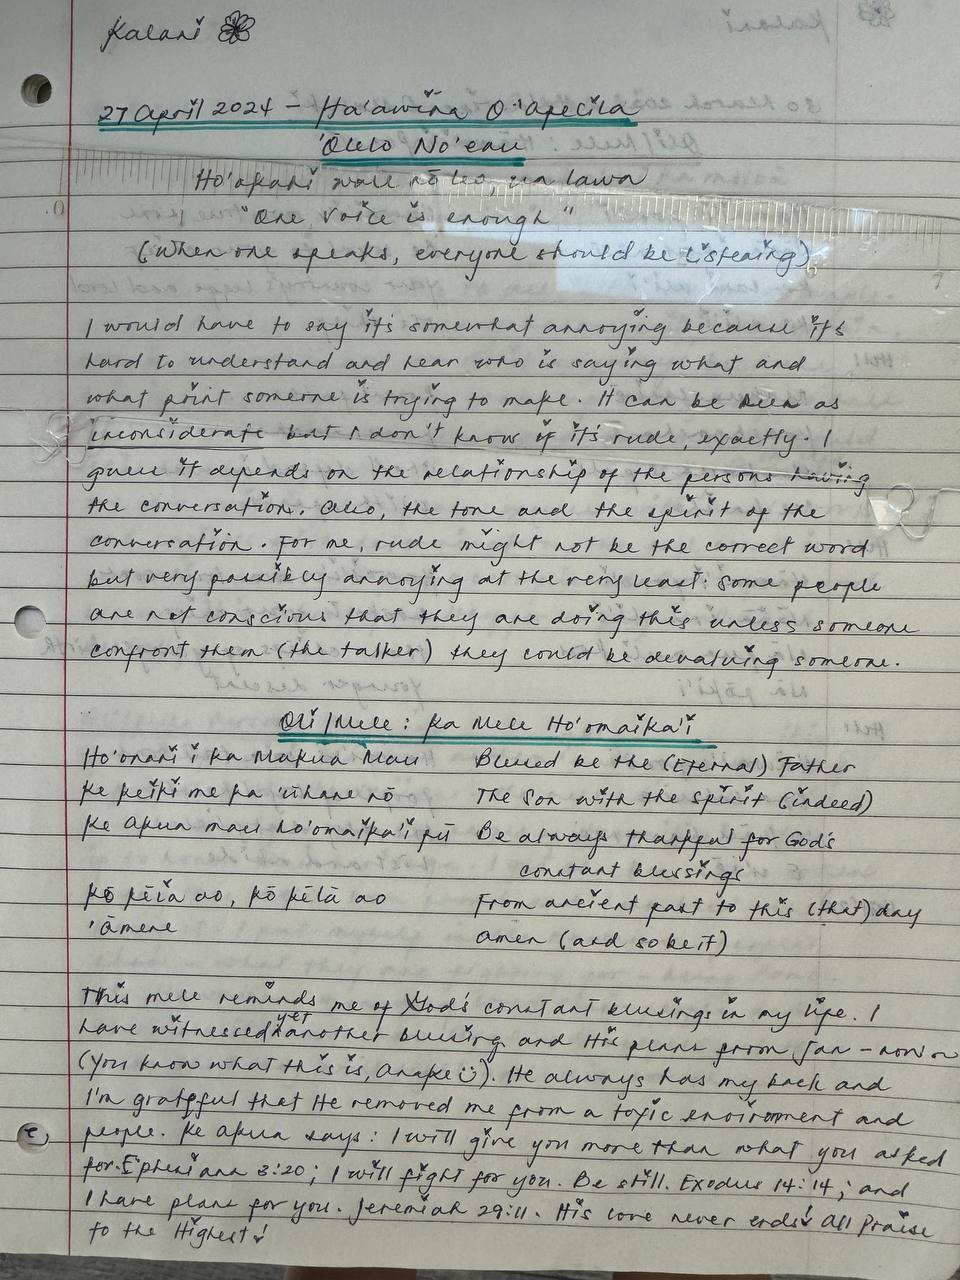 Kalani
27 April 2024 - Ha'awina O 'Apelila
'Ōlelo No'eau
Ho'okani wale nō leo, ua lawa
"One voice is enough"
(When one speaks, everyone should be listening)
I would have to say it's somewhat annoying because it's
hard to understand and hear who is saying what and
what point someone is trying to make. It can be seen as
inconsiderate but I don't know if it's rude, exactly. I
guess it depends on the relationship of the persons having
the conversation. Also, the tone and the spirit of the
conversation. For me, rude might not be the correct word
but very possibly annoying at the very least. Some people
are not conscious that they are doing this unless someone
confront them (the talker) they could be devaluing someone.
Oli/Mele: Ka Mele Ho'omaika'i
Ho'onani i ka Makua Mau Blessed be the (Eternal) Father
Ke Keiki me ka 'Uhane nō The Son with the spirit (indeed)
Ke Akua mau ho'omaika'i pū Be always thankful for God's
constant blessings
Kō kēia ao, kō kēlā ao From ancient past to this (that) day
'Āmene Amen (and so be it)
This mele reminds me of God's constant blessings in my life. I
have witnessed yet another blessing and His plans from Jan - now
(you know what this is, Anake). He always has my back and
I'm grateful that He removed me from a toxic environment and
people. Ke Akua says: I will give you more than what you asked
for. Ephesians 3:20; I will fight for you. Be still. Exodus 14:14; and
I have plans for you. Jeremiah 29:11. His love never ends! All Praise
to the Highest!